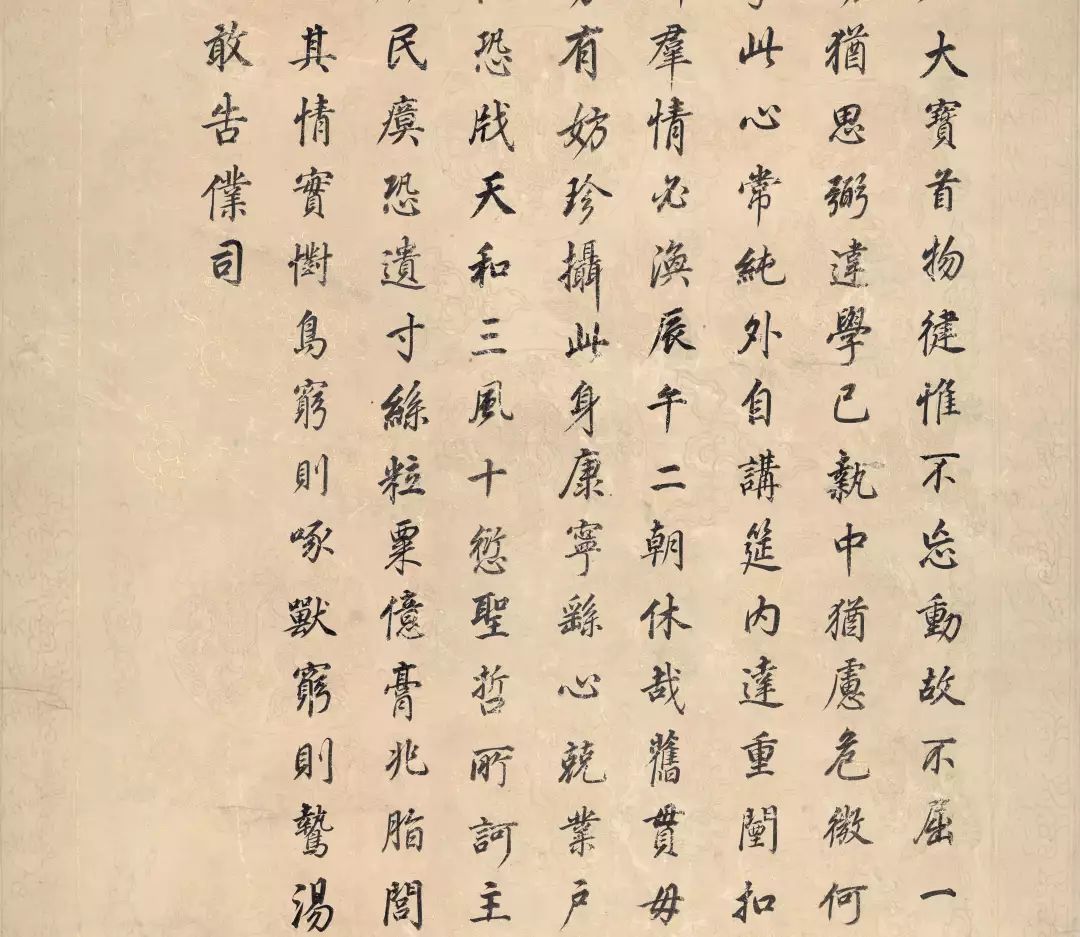 大寶首物健惟不忘動故不屈一
猶思弼違學已執中猶慮危微何
此心常純外自講筵内達重闈扣
羣情必渙辰午二朝休哉舊貫毋
有妨珍攝此身康寧繇心兢業戶
恐戕天和三風十愆聖哲所訶主
民瘼恐遺寸絲粒粟億膏兆脂閭
其情實懟鳥窮則啄獸窮則驁湯
敢告僕司